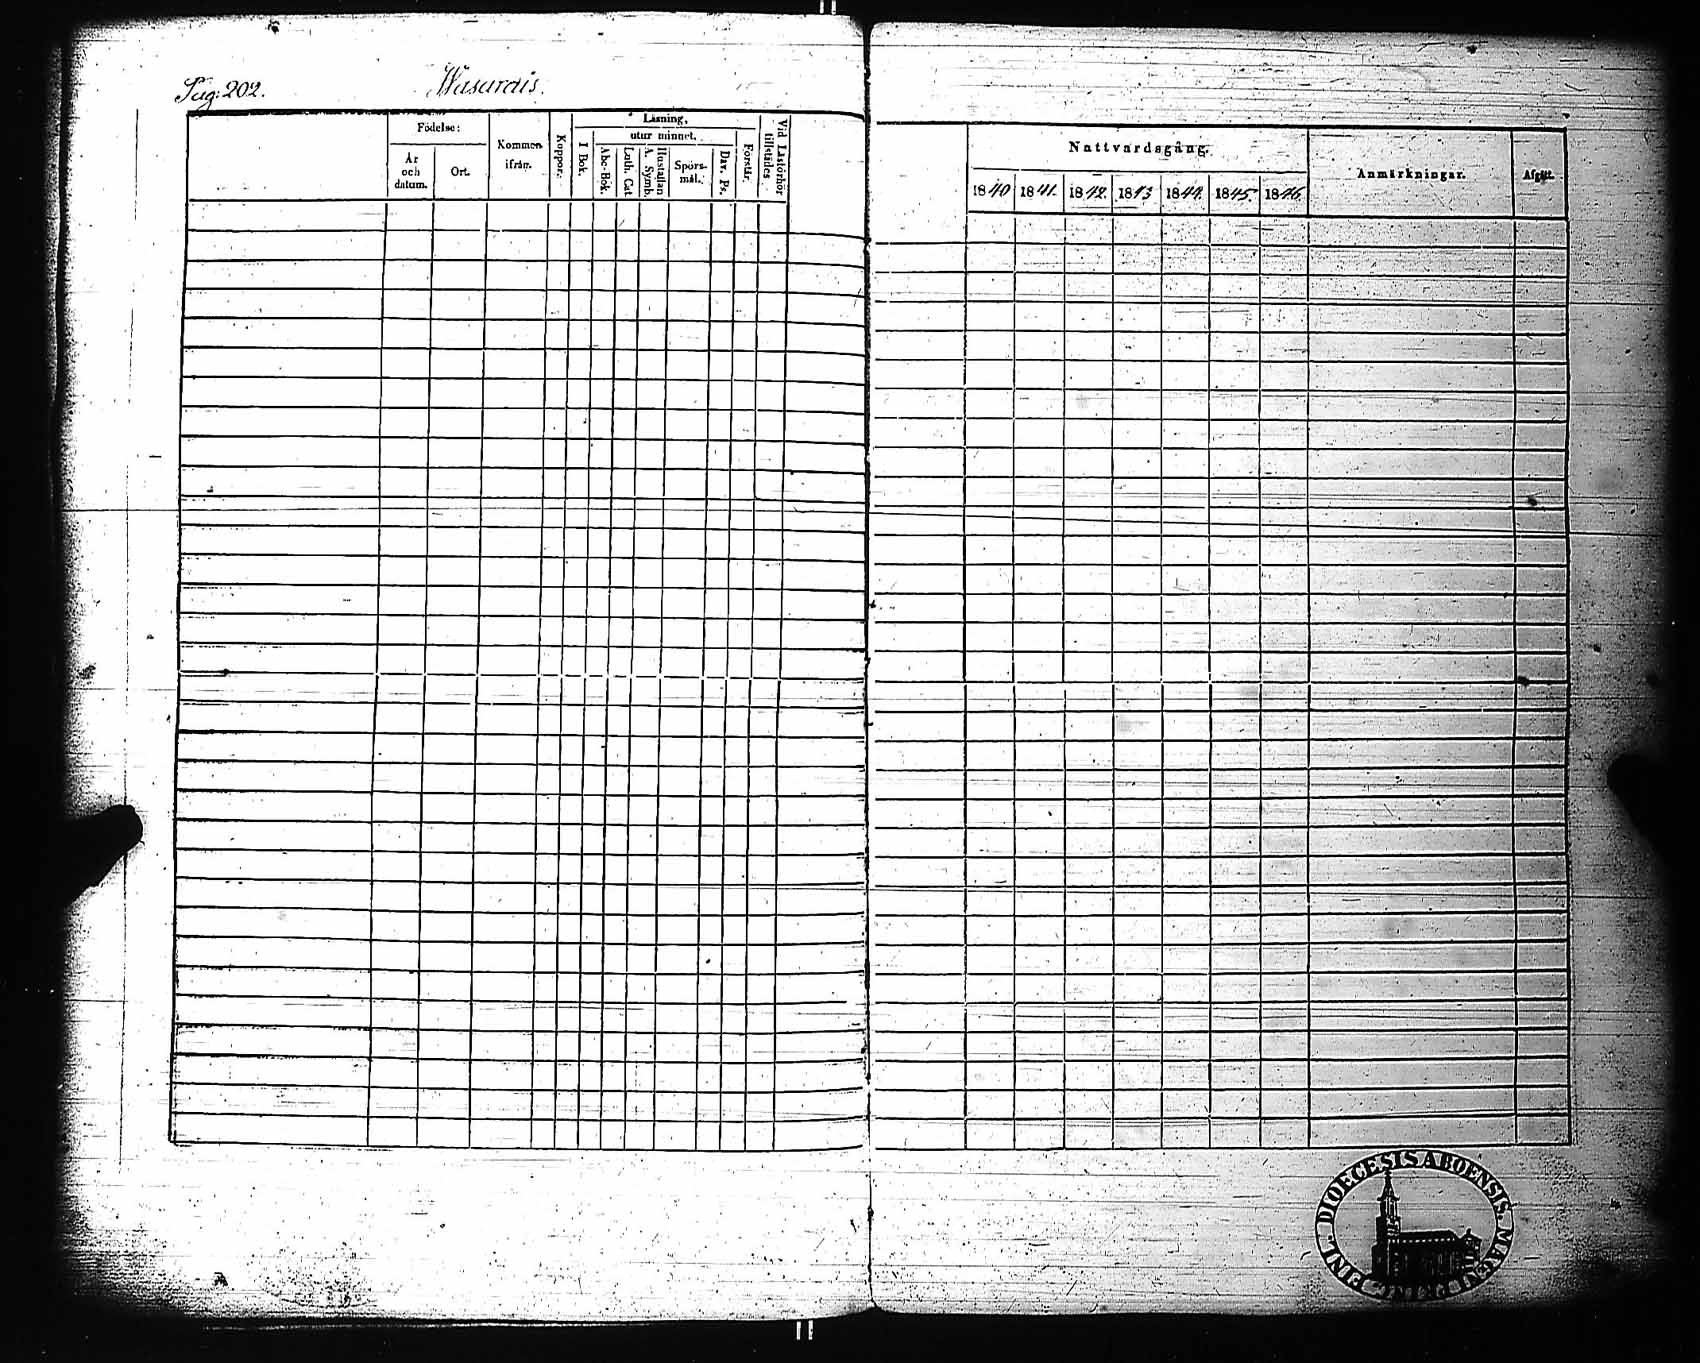 Pag: 202.
Wasarais.
Födelse:
År och datum.
Ort.
Kommen ifrån.
Koppor.
Läsning,
I Bok.
utur minnet.
Abc-Bok.
Luth. Cat.
Hustaflan A. Symb.
Spörsmål.
Dav. Ps.
Förstår.
Vid Läsförhör tillstädes
Nattvardsgång.
1840
1841.
1842.
1843
1844.
1845.
1846.
Anmärkningar.
Afgått.
DIOECESIS ABOENSIS. MAGNI PRINC. FINL.